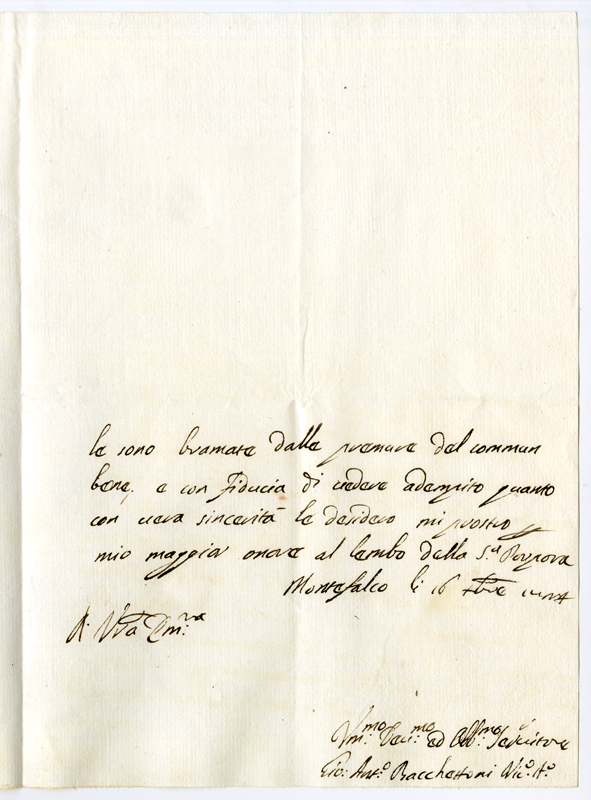 le sono bramate dalle premure del commun
bene, e con fiducia di vedere adempito quanto
con vera sincerità le desidero mi prostro p
mio maggior onore al lembo della S.ª Porpora
Montefalco li 16 xbre
Di V.ra Em.za
Um.mo Dev.mo ed Obl.mo Servitore
Gio: Ant.o Bacchettoni Vic.o A.o